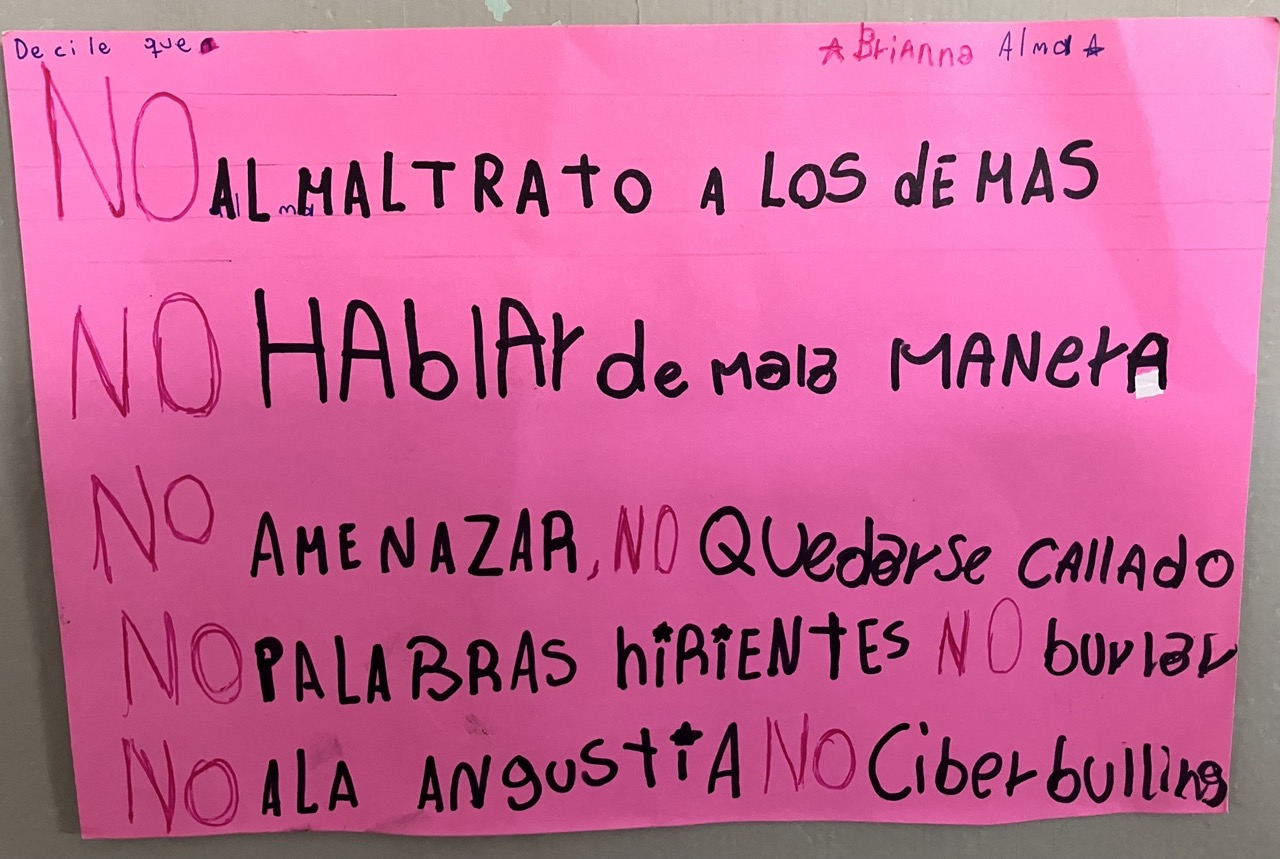 Decile que
★ Brianna Alma ★
NO AL MALTRATO A LOS dEMAS
NO HAblAr de mala MANerA
NO AMENAZAR, NO QUedarse CAllAdo
NO PALABRAS hiRiENtES NO burlar
NO ALA ANgustiA NO Ciberbulling